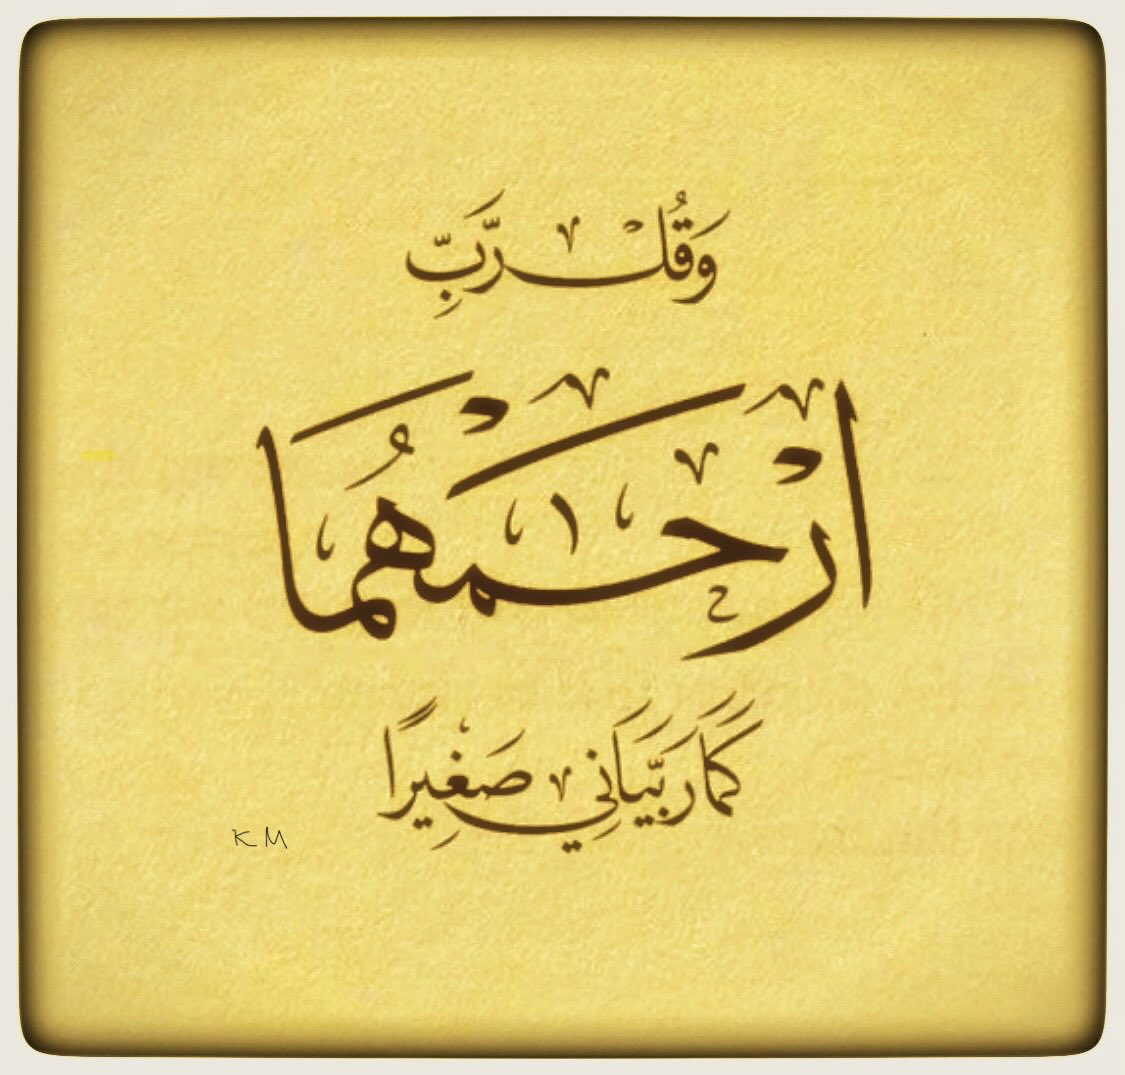 وَقُلْ رَّبِّ
ارْحَمْهُمَا
كَمَا رَبَّيَانِي صَغِيرًا
K M